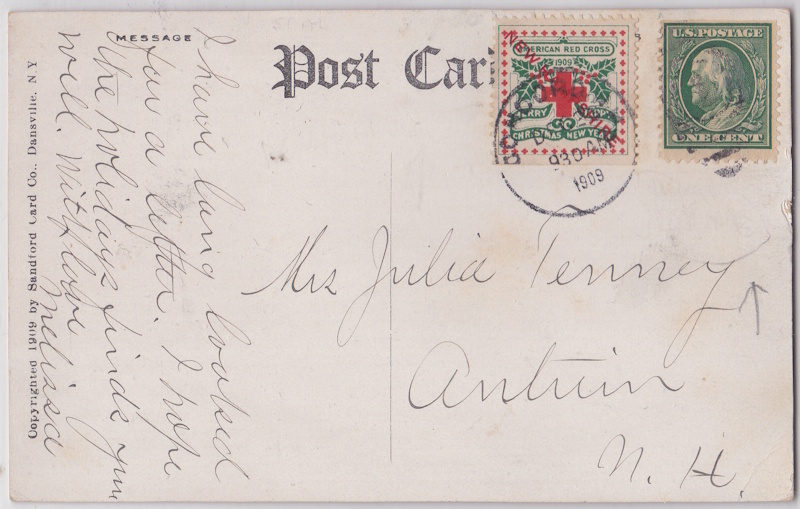 MESSAGE
Post Card
I have long looked
for a letter. I hope
the holidays finds you
well. With love
Melissa
Copyrighted 1909 by Sandford Card Co., Dansville, N.Y
AMERICAN RED CROSS
1909
MERRY
CHRISTMAS NEW YEAR
NEW HAMPSHIRE
CONCORD
930 AM
1909
U.S. POSTAGE
ONE CENT
Mrs Julia Tenney
Antrim
N. H.